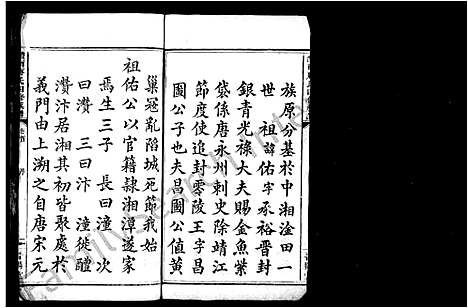 族原分基於中湘淦田一
世祖諱佑字承裕晋封
銀青光祿大夫賜金魚紫
袋係唐永州刺史除靖江
節度使追封零陵王字昌
圖公子也夫昌圖公值黃
巢冠亂陷城死節我始
祖佑公以官籍隸湘潭遂家
焉生三子長曰潼次
曰濽三曰汴潼徙醴
濽汴居湘其初皆聚處於
義門由上溯之自唐宋元
FamilySearch International